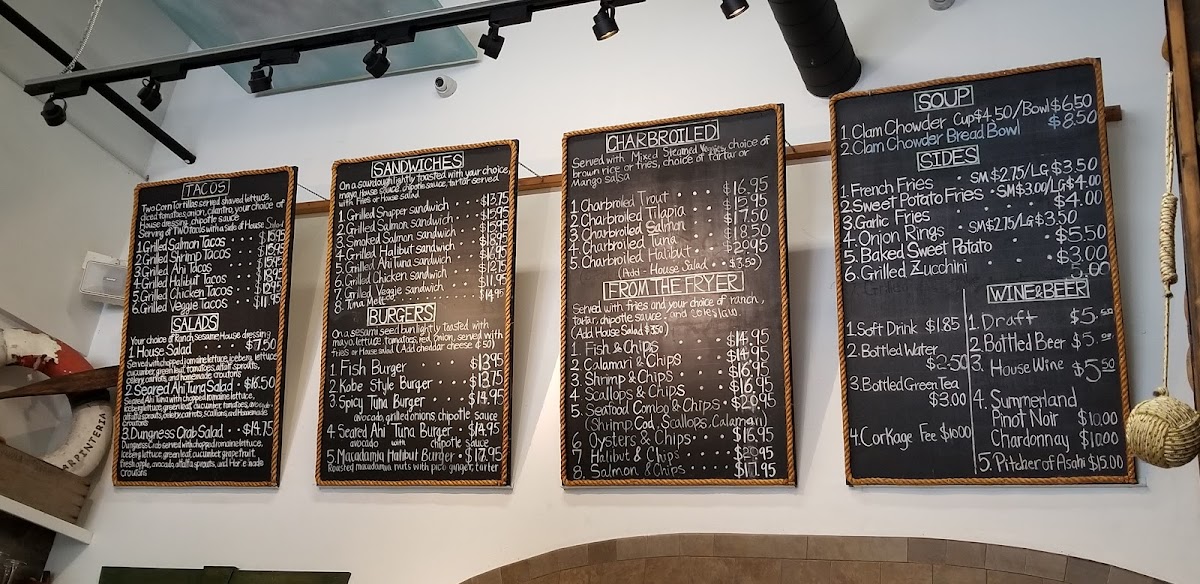 TACOS
Two Corn Tortillas served shaved lettuce,
diced tomatoes, onion, cilantro, your choice of
House dressing, chipotle sauce
Serving of TWO tacos with a side of House Salad
1. Grilled Salmon Tacos
2. Grilled Shrimp Tacos
3. Grilled Ahi Tacos
4. Grilled Halibut Tacos
5. Grilled Chicken Tacos
6. Grilled Veggie Tacos $11.95
SALADS
Your choice of Ranch, sesame, House dressing
1. House Salad $7.50
Served with chopped romaine lettuce, iceberg lettuce
cucumber, green leaf, tomatoes, alfalfa sprouts,
celery, carrots, and homemade croutons
2. Seared Ahi Tuna Salad $16.50
Seared Ahi Tuna with chopped romaine lettuce,
Iceberg lettuce, green leaf, cucumber, tomatoes, avocado
alfalfa sprouts, celery, carrots, scallions, and Homemade
croutons
3. Dungness Crab Salad $14.75
Dungness Crab served with chopped romaine lettuce,
Iceberg lettuce, green leaf, cucumber, grapefruit,
fresh apple, avocado, alfalfa sprouts, and Homemade
croutons
SANDWICHES
On a sourdough lightly toasted with your choice,
mayo, House sauce, chipotle sauce, tartar served
with Fries or House salad
1. Grilled Snapper sandwich $13.75
2. Grilled Salmon sandwich $15.95
3. Smoked Salmon sandwich $15.95
4. Grilled Halibut sandwich $18.95
5. Grilled Ahi Tuna sandwich $16.95
6. Grilled Chicken sandwich $12.75
7. Grilled Veggie sandwich $11.95
8. Tuna Melt $14.95
BURGERS
On a sesami seed bun lightly toasted with
mayo, lettuce, tomatoes, red onion, served with
fries or House salad (Add cheddar cheese $.50)
1. Fish Burger $13.95
2. Kobe Style Burger $13.75
3. Spicy Tuna Burger $14.95
avocado, grilled onions, chipotle sauce
4. Seared Ahi Tuna Burger $14.95
avocado with chipotle sauce
5. Macadamia Halibut Burger $17.95
Roasted macadamia nuts with pico ginger, tarter
CHARBROILED
Served with Mixed Steamed Veggies, choice of
brown rice or fries, choice of tartar or
Mango salsa
1. Charbroiled Trout $16.95
2. Charbroiled Tilapia $15.95
3. Charbroiled Salmon $17.50
4. Charbroiled Tuna $18.50
5. Charbroiled Halibut $20.95
(Add - House Salad $3.50)
FROM THE FRYER
Served with fries and your choice of ranch,
tartar, chipotle sauce, and coleslaw.
(Add House Salad $3.50)
1. Fish & Chips $14.95
2. Calamari & Chips $14.95
3. Shrimp & Chips $16.95
4. Scallops & Chips $16.95
5. Seafood Combo & Chips $20.95
(Shrimp, Cod, Scallops, Calamari)
6. Oysters & Chips $16.95
7. Halibut & Chips $20.95
8. Salmon & Chips $17.95
SOUP
1. Clam Chowder Cup $4.50/Bowl $6.50
2. Clam Chowder Bread Bowl $8.50
SIDES
1. French Fries SM $2.75/LG $3.50
2. Sweet Potato Fries SM $3.00/LG $4.00
3. Garlic Fries $4.00
4. Onion Rings SM $2.75/LG $3.50
5. Baked Sweet Potato $5.50
6. Grilled Zucchini $3.00
5.00
1. Soft Drink $1.85
2. Bottled Water
$2.50
3. Bottled Green Tea
$3.00
4. Corkage Fee $10.00
WINE & BEER
1. Draft $5.50
2. Bottled Beer $5.00
3. House Wine $5.50
4. Summerland
Pinot Noir $10.00
Chardonnay $10.00
5. Pitcher of Asahi $15.00
ARPINTERIA